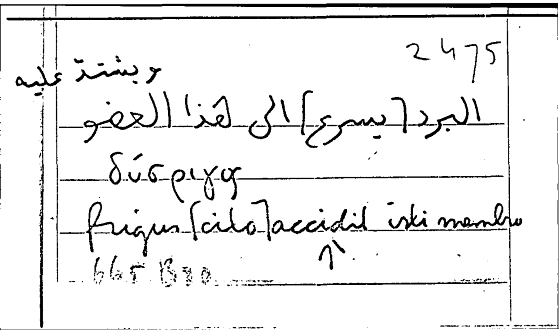 2475
ويشتد عليه
البرد [يسرع] الى هذا العضو
δύσριγος
frigus [cito] accidit isti membro
↑
665 B20